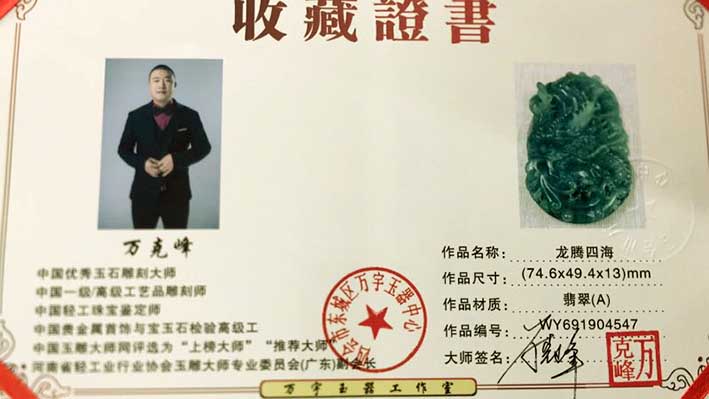 收藏證書
万克峰
中国优秀玉石雕刻大师
中国一级/高级工艺品雕刻师
中国轻工珠宝鉴定师
中国贵金属首饰与宝玉石检验高级工
中国玉雕大师网评选为“上榜大师” “推荐大师”
河南省轻工业行业协会玉雕大师专业委员会(广东)副会长
作品名称: 龙腾四海
作品尺寸: (74.6x49.4x13)mm
作品材质: 翡翠(A)
作品编号: WY691904547
大师签名:
万克峰
市东城区万宇玉器中心
万宇玉器工作室